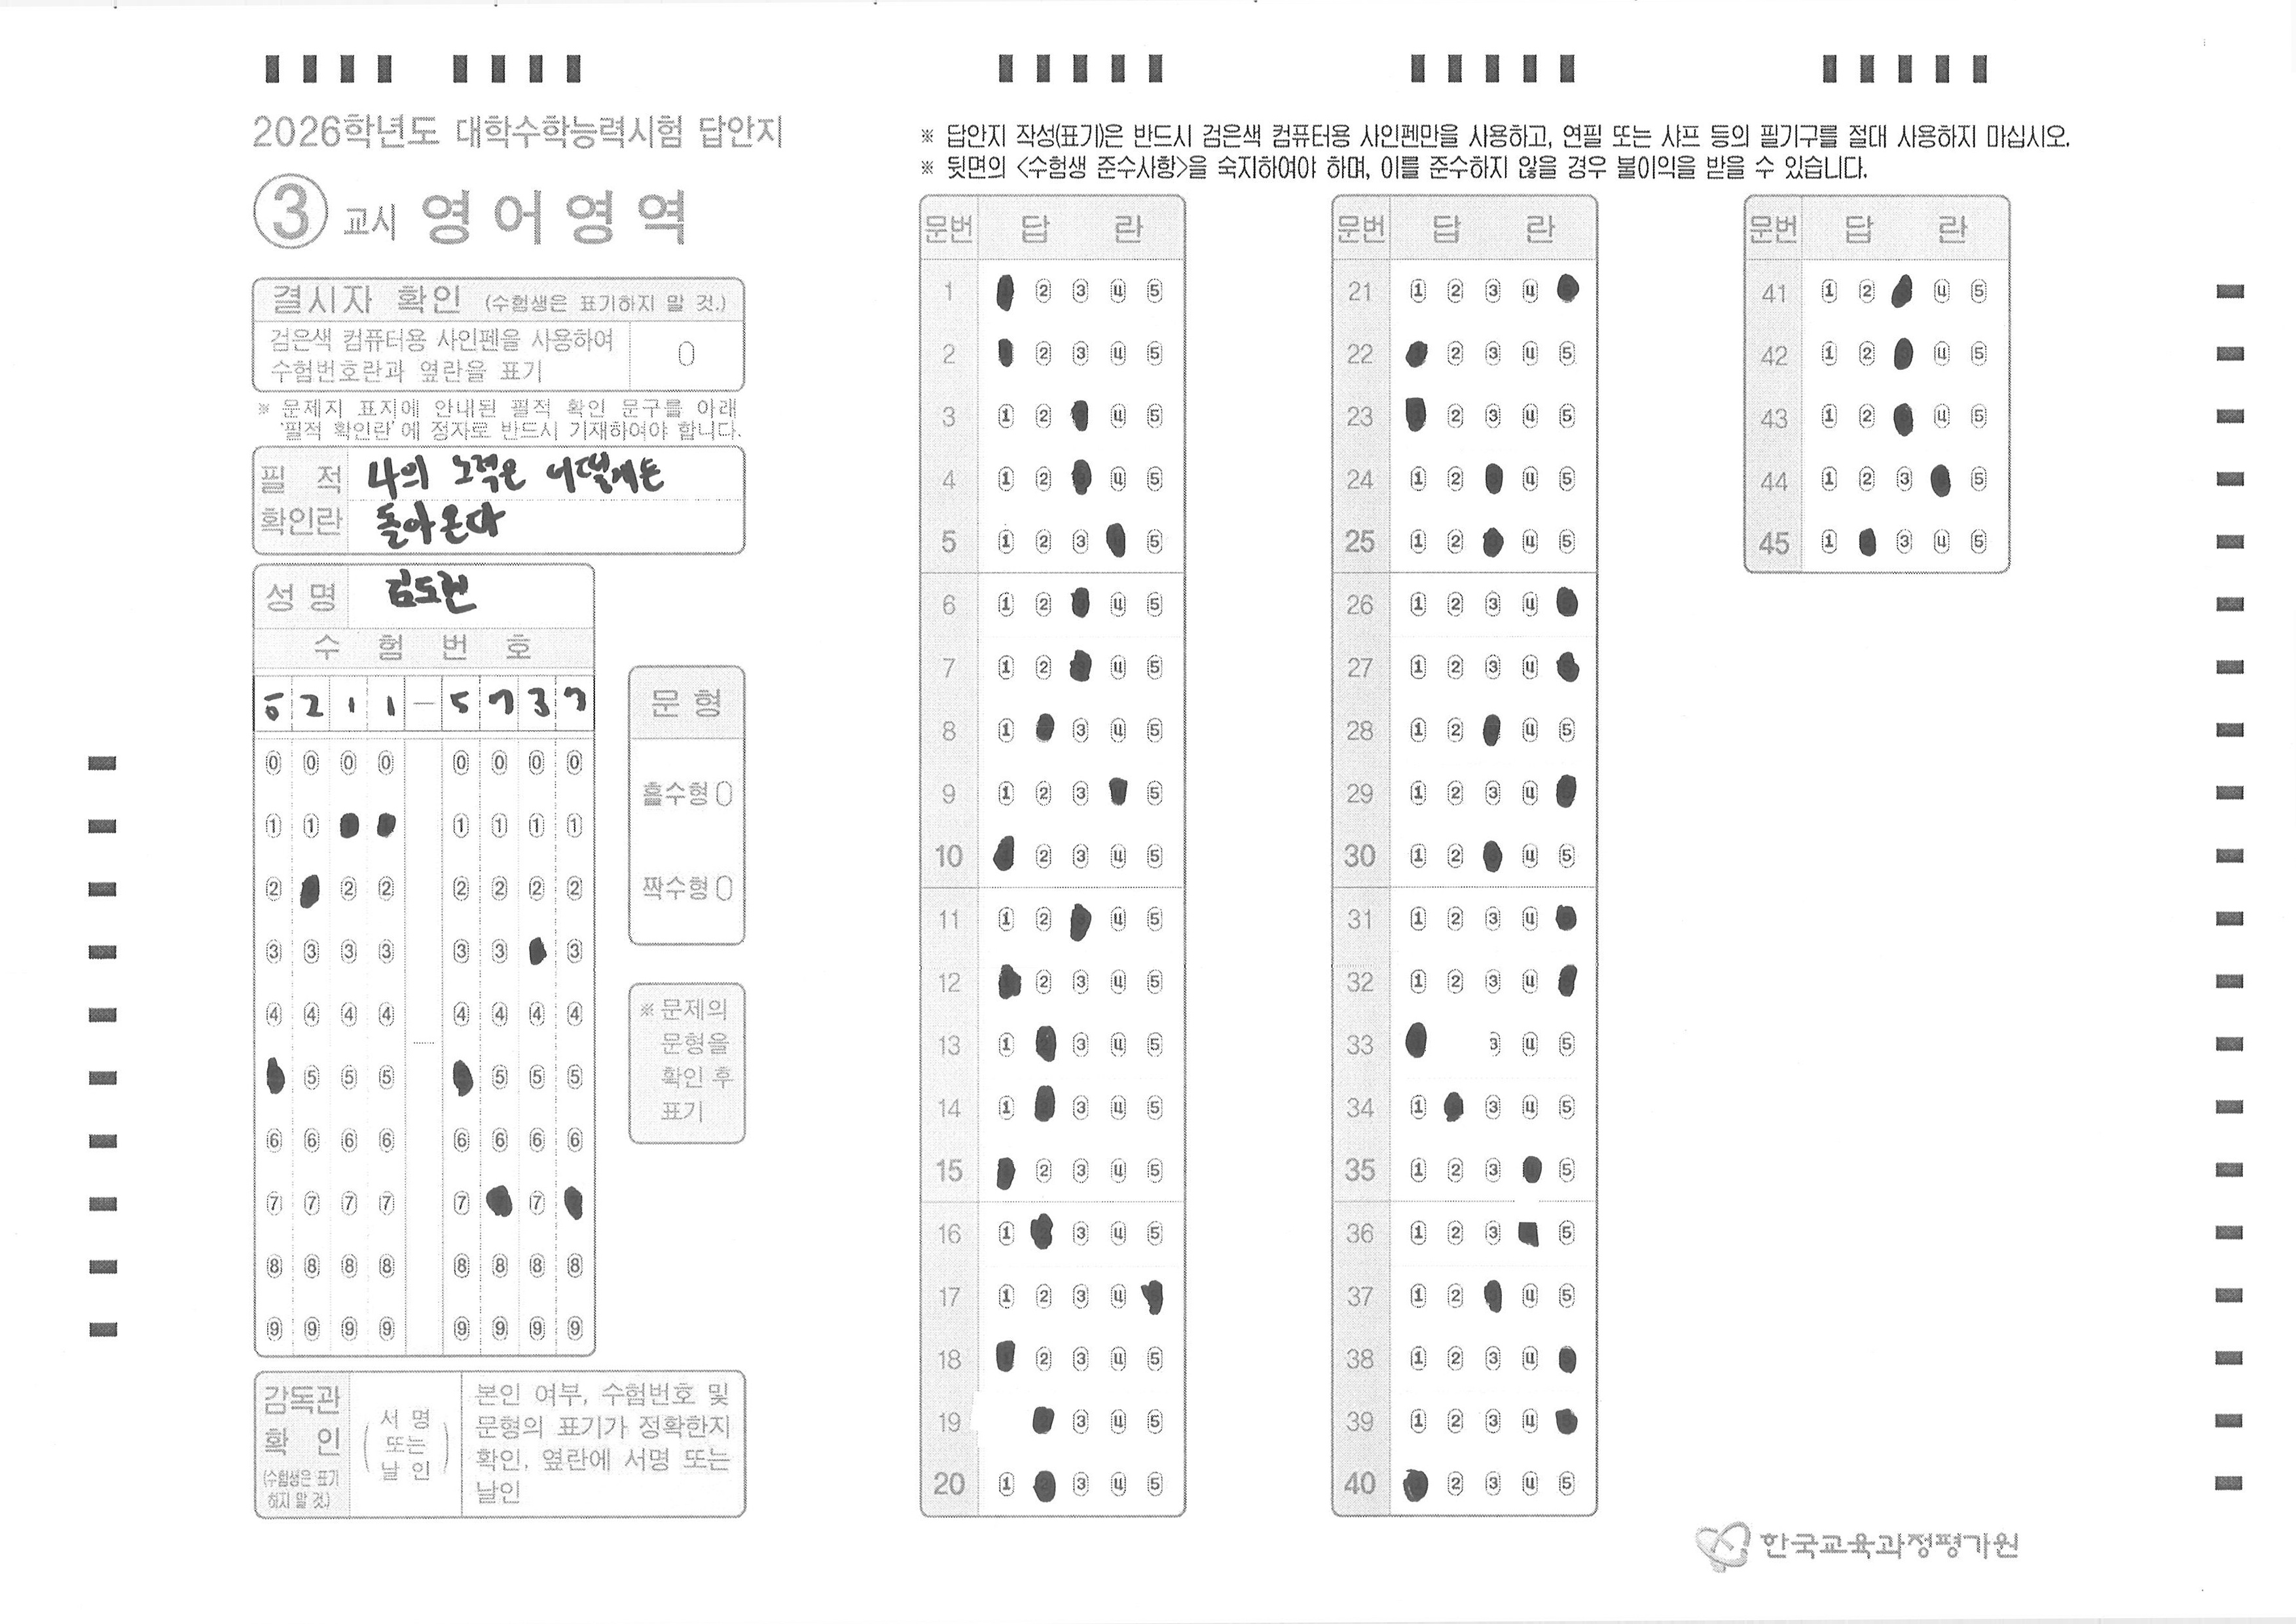 2026학년도 대학수학능력시험 답안지
③ 교시 영어영역
결시자 확인 (수험생은 표기하지 말 것.)
검은색 컴퓨터용 사인펜을 사용하여
수험번호란과 옆란을 표기
※ 문제지 표지에 안내된 필적 확인 문구를 아래
'필적 확인란'에 정자로 반드시 기재하여야 합니다.
필적 확인란
나의 노력은 어떻게든
돌아온다
성명 김도현
수험번호
5 2 1 1 - 5 7 3 7
0 0 0 0 0 0 0 0
1 1 1 1 1 1
2 2 2 2 2 2 2
3 3 3 3 3 3 3
4 4 4 4 4 4 4 4
5 5 5 5 5 5
6 6 6 6 6 6 6 6
7 7 7 7 7 7
8 8 8 8 8 8 8 8
9 9 9 9 9 9 9 9
문형
홀수형
짝수형
※ 문제의
문형을
확인 후
표기
감독관 확인
(수험생은 표기
하지 말 것.)
(서명 또는 날인)
본인 여부, 수험번호 및
문형의 표기가 정확한지
확인, 옆란에 서명 또는
날인
※ 답안지 작성(표기)은 반드시 검은색 컴퓨터용 사인펜만을 사용하고, 연필 또는 샤프 등의 필기구를 절대 사용하지 마십시오.
※ 뒷면의 <수험생 준수사항>을 숙지하여야 하며, 이를 준수하지 않을 경우 불이익을 받을 수 있습니다.
문번 답란
1 2 3 4 5
2 2 3 4 5
3 1 2 4 5
4 1 2 4 5
5 1 2 3 5
6 1 2 4 5
7 1 2 4 5
8 1 3 4 5
9 1 2 3 5
10 2 3 4 5
11 1 2 4 5
12 2 3 4 5
13 1 3 4 5
14 1 3 4 5
15 2 3 4 5
16 1 3 4 5
17 1 2 3 4
18 2 3 4 5
19 3 4 5
20 1 3 4 5
문번 답란
21 1 2 3 4
22 2 3 4 5
23 2 3 4 5
24 1 2 4 5
25 1 2 4 5
26 1 2 3 4
27 1 2 3 4
28 1 2 4 5
29 1 2 3 4
30 1 2 4 5
31 1 2 3 4
32 1 2 3 4
33 3 4 5
34 1 3 4 5
35 1 2 3 5
36 1 2 3 5
37 1 2 4 5
38 1 2 3 4
39 1 2 3 4
40 2 3 4 5
문번 답란
41 1 2 4 5
42 1 2 4 5
43 1 2 4 5
44 1 2 3 5
45 1 3 4 5
한국교육과정평가원